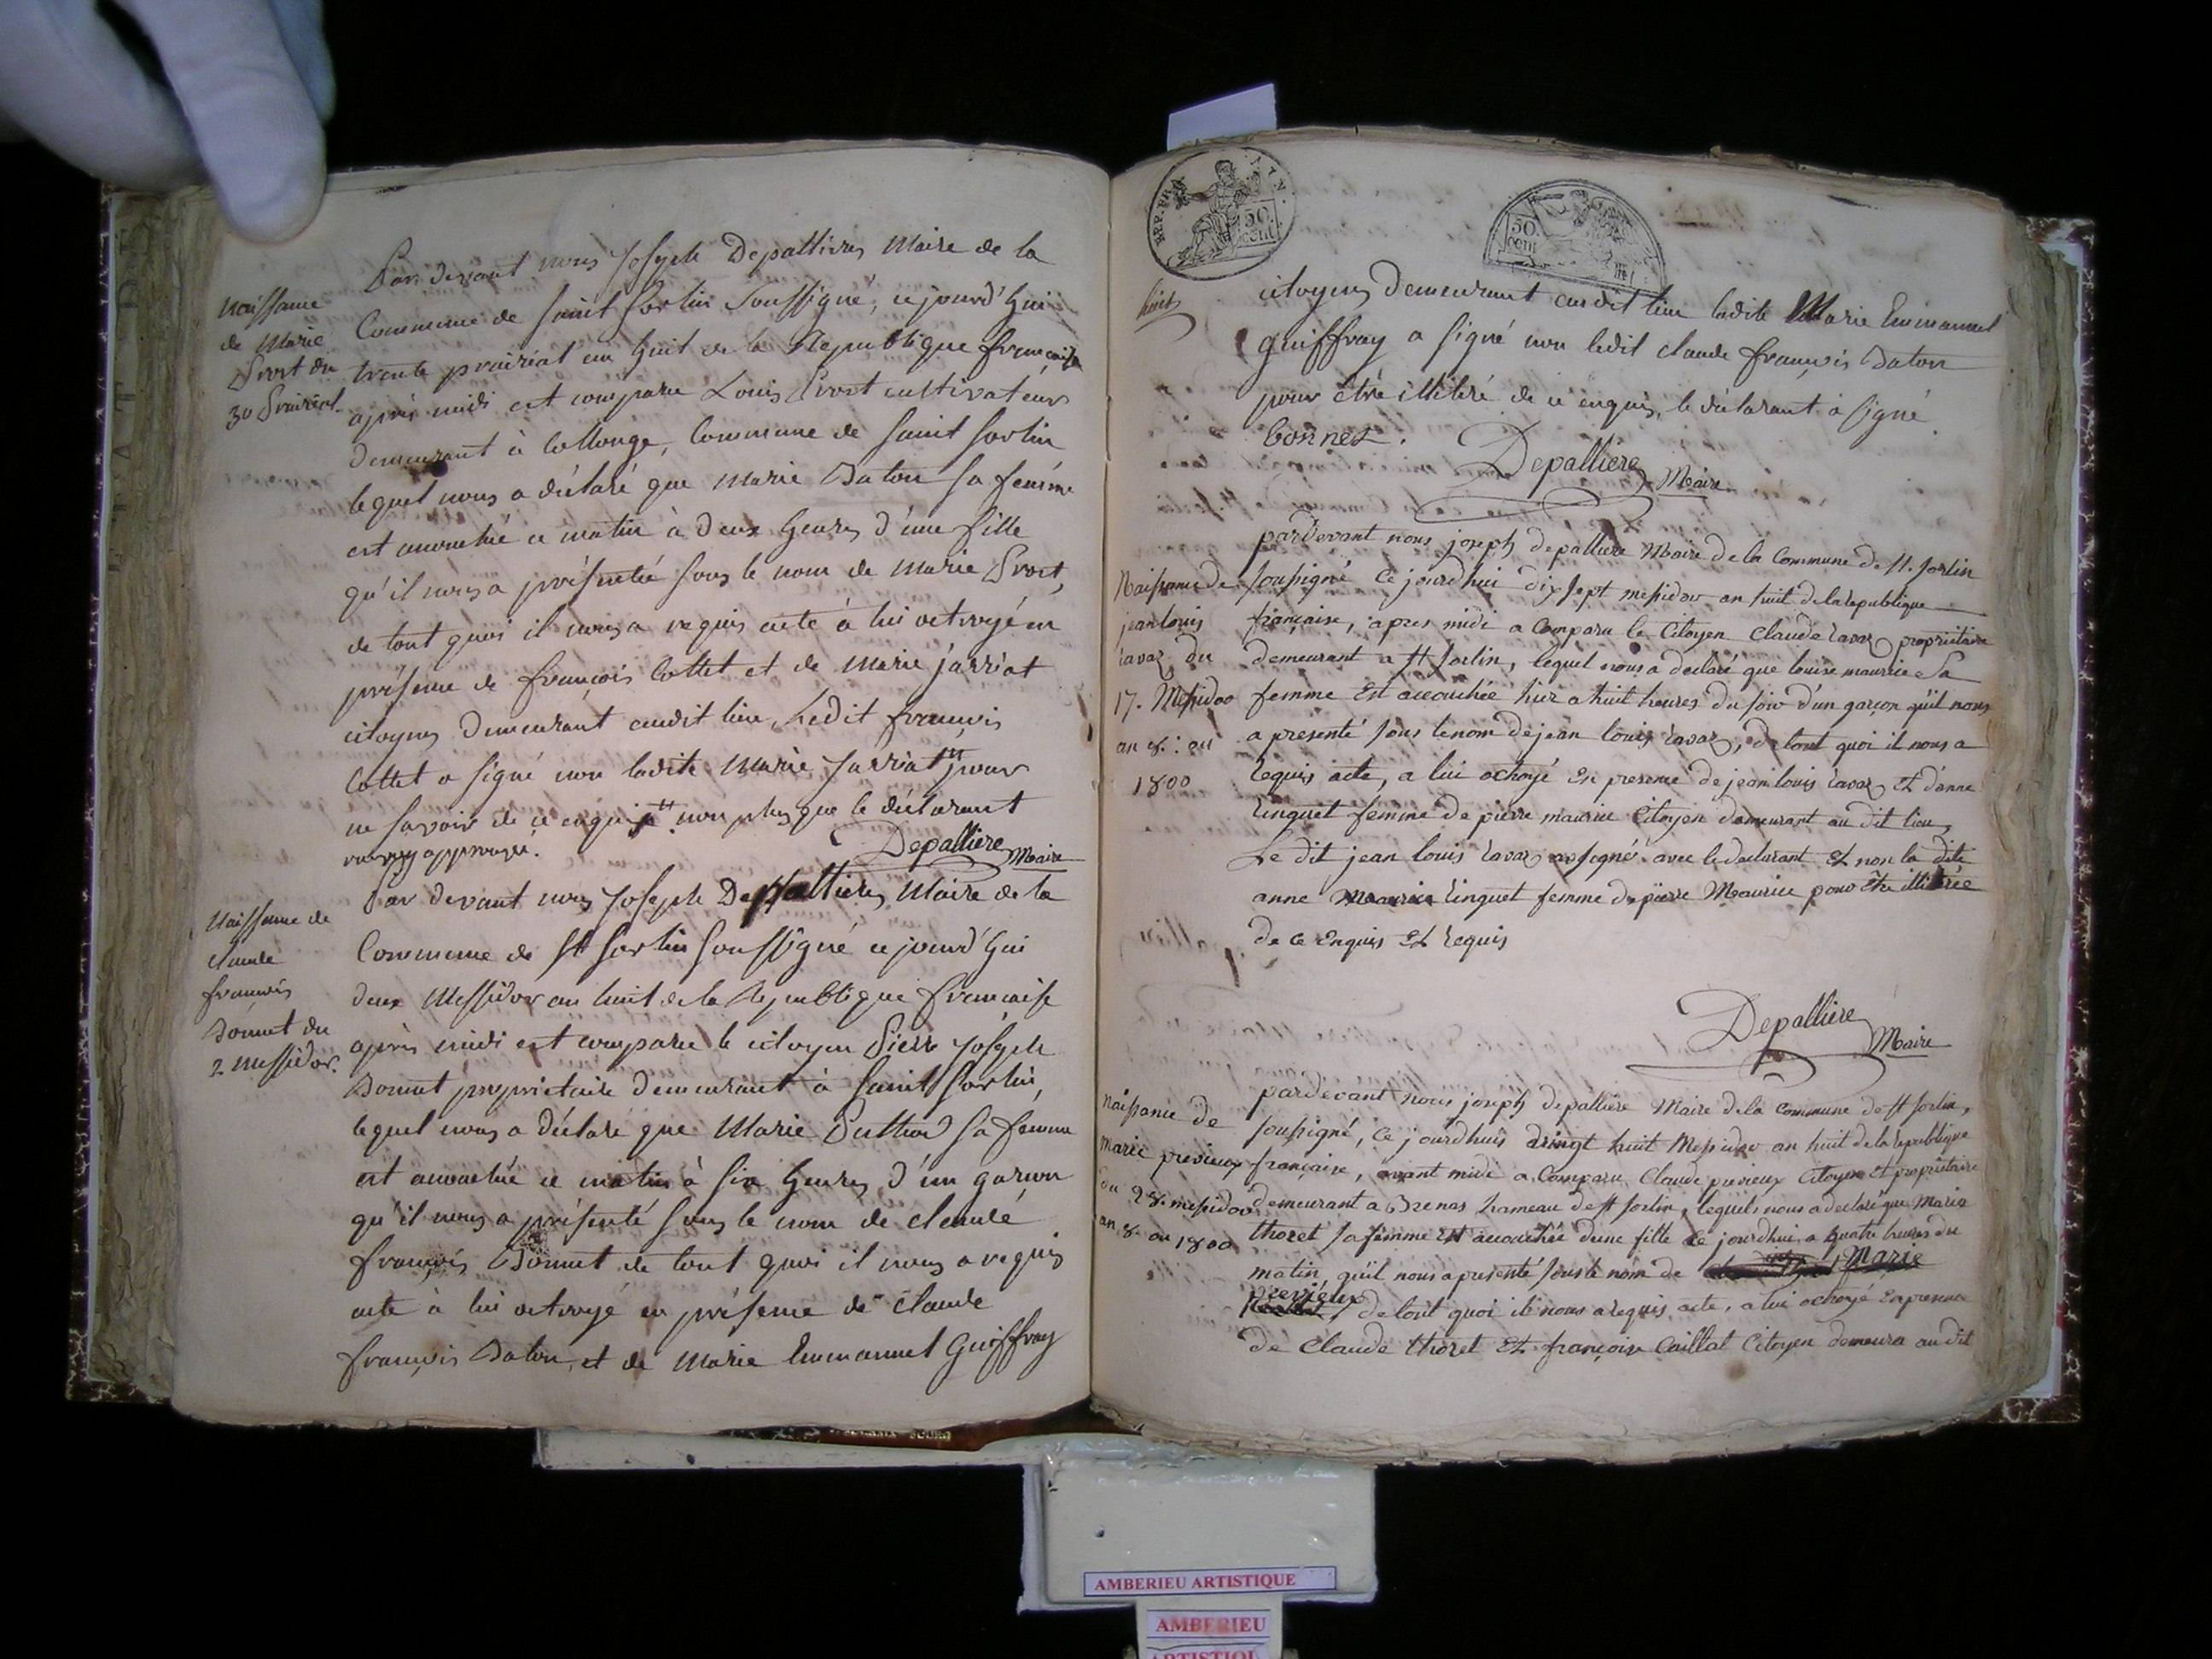 Par devant nous Joseph Depallieres Maire de la
Naissance
de Marie
Prost du
30 Prairial.
Commune de saint Sorlin soussigné, ce jourd'hui
trente prairial an huit de la Republique française
après midi est comparu Louis Prost cultivateur
demeurant à Collonge, Commune de saint Sorlin
lequel nous a déclaré que Marie Baton sa femme
est accouchée ce matin à deux heures d'une fille
qu'il nous a présentée sous le nom de Marie Prost,
de tout quoi il nous a requis acte à lui octroyé en
présence de françois Cottet et de Marie jarriat
citoyens demeurant audit lieu Ledit françois
Cottet a signé non ladite Marie Jarriat pour
ne savoir de ce enquise non plus que le déclarant
approuvée.
Depalliere Maire
Naissance de
claude
françois
Bonnet du
2 Messidor.
Par devant nous Joseph Depallieres Maire de la
Commune de St Sorlin soussigné ce jourd'hui
deux Messidor an huit de la Republique francaise
après midi est comparu le citoyen Pierre Joseph
Bonnet propriétaire demeurant à saint Sorlin,
lequel nous a déclaré que Marie Puthod sa femme
est accouchée ce matin à six heures d'un garçon
qu'il nous a présenté sous le nom de claude
françois Bonnet de tout quoi il nous a requis
acte à lui octroyé en présence de claude
françois Baton, et de Marie Emmanuel Guiffray
REP. FRA.
50
cent
50
cent
huit
citoyens demeurant audit lieu ladite Marie Emmanuel
guiffray a signé non ledit claude françois Baton
pour être illiteré de ce enquis, le déclarant à signé
bonnet.
Depalliere Maire
Naissance de
jean louis
ravaz du
17. Messidor
an 8. ou
1800
pardevant nous joseph depalliere Maire de la Commune de St. Sorlin
soussigné ce jourdhui dix sept messidor an huit de la republique
française, apres midi a Comparu le Citoyen Claude ravaz propriétaire
demeurant a St Sorlin, lequel nous a declaré que louise maurice Sa
femme Est accouchée hier a huit heures du soir d'un garçon qu'il nous
a presenté sous le nom de jean louis ravaz, de tout quoi il nous a
requis acte, a lui octroyé En presence de jean louis ravaz Et d'anne
Linguet femme de pierre maurice Citoyen demeurant au dit lieu,
Le dit jean louis ravaz a signé avec le declarant Et non la dite
anne Maurice Linguet femme de pierre Maurice pour être illiterée
de ce Enquis Et requis
Depalliere
Maire
Naissance de
Marie prévieux
du 28. messidor
an 8. ou 1800
pardevant nous joseph depalliere Maire de la Commune de St Sorlin,
soussigné, Ce jourdhuis vingt huit Messidor an huit de la republique
française, avant midi a Comparu Claude previeux Citoyen Et propriétaire
demeurant a Brenas hameau de St Sorlin, lequel nous a declaré que Marie
thoret sa femme Est accouchée d'une fille Ce jourdhui a quatre heures du
matin, qu'il nous a presenté sous le nom de Marie
prevjeux
de tout quoi il nous a requis acte, a lui octroyé En presence
de Claude thoret Et françoise Caillat Citoyen demeura au dit
AMBERIEU ARTISTIQUE
AMBERIEU
ARTISTIQU